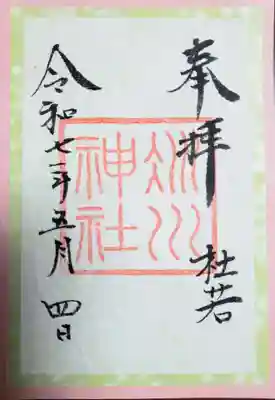 奉拝
杜若
冰川
神社
令和七年五月四日